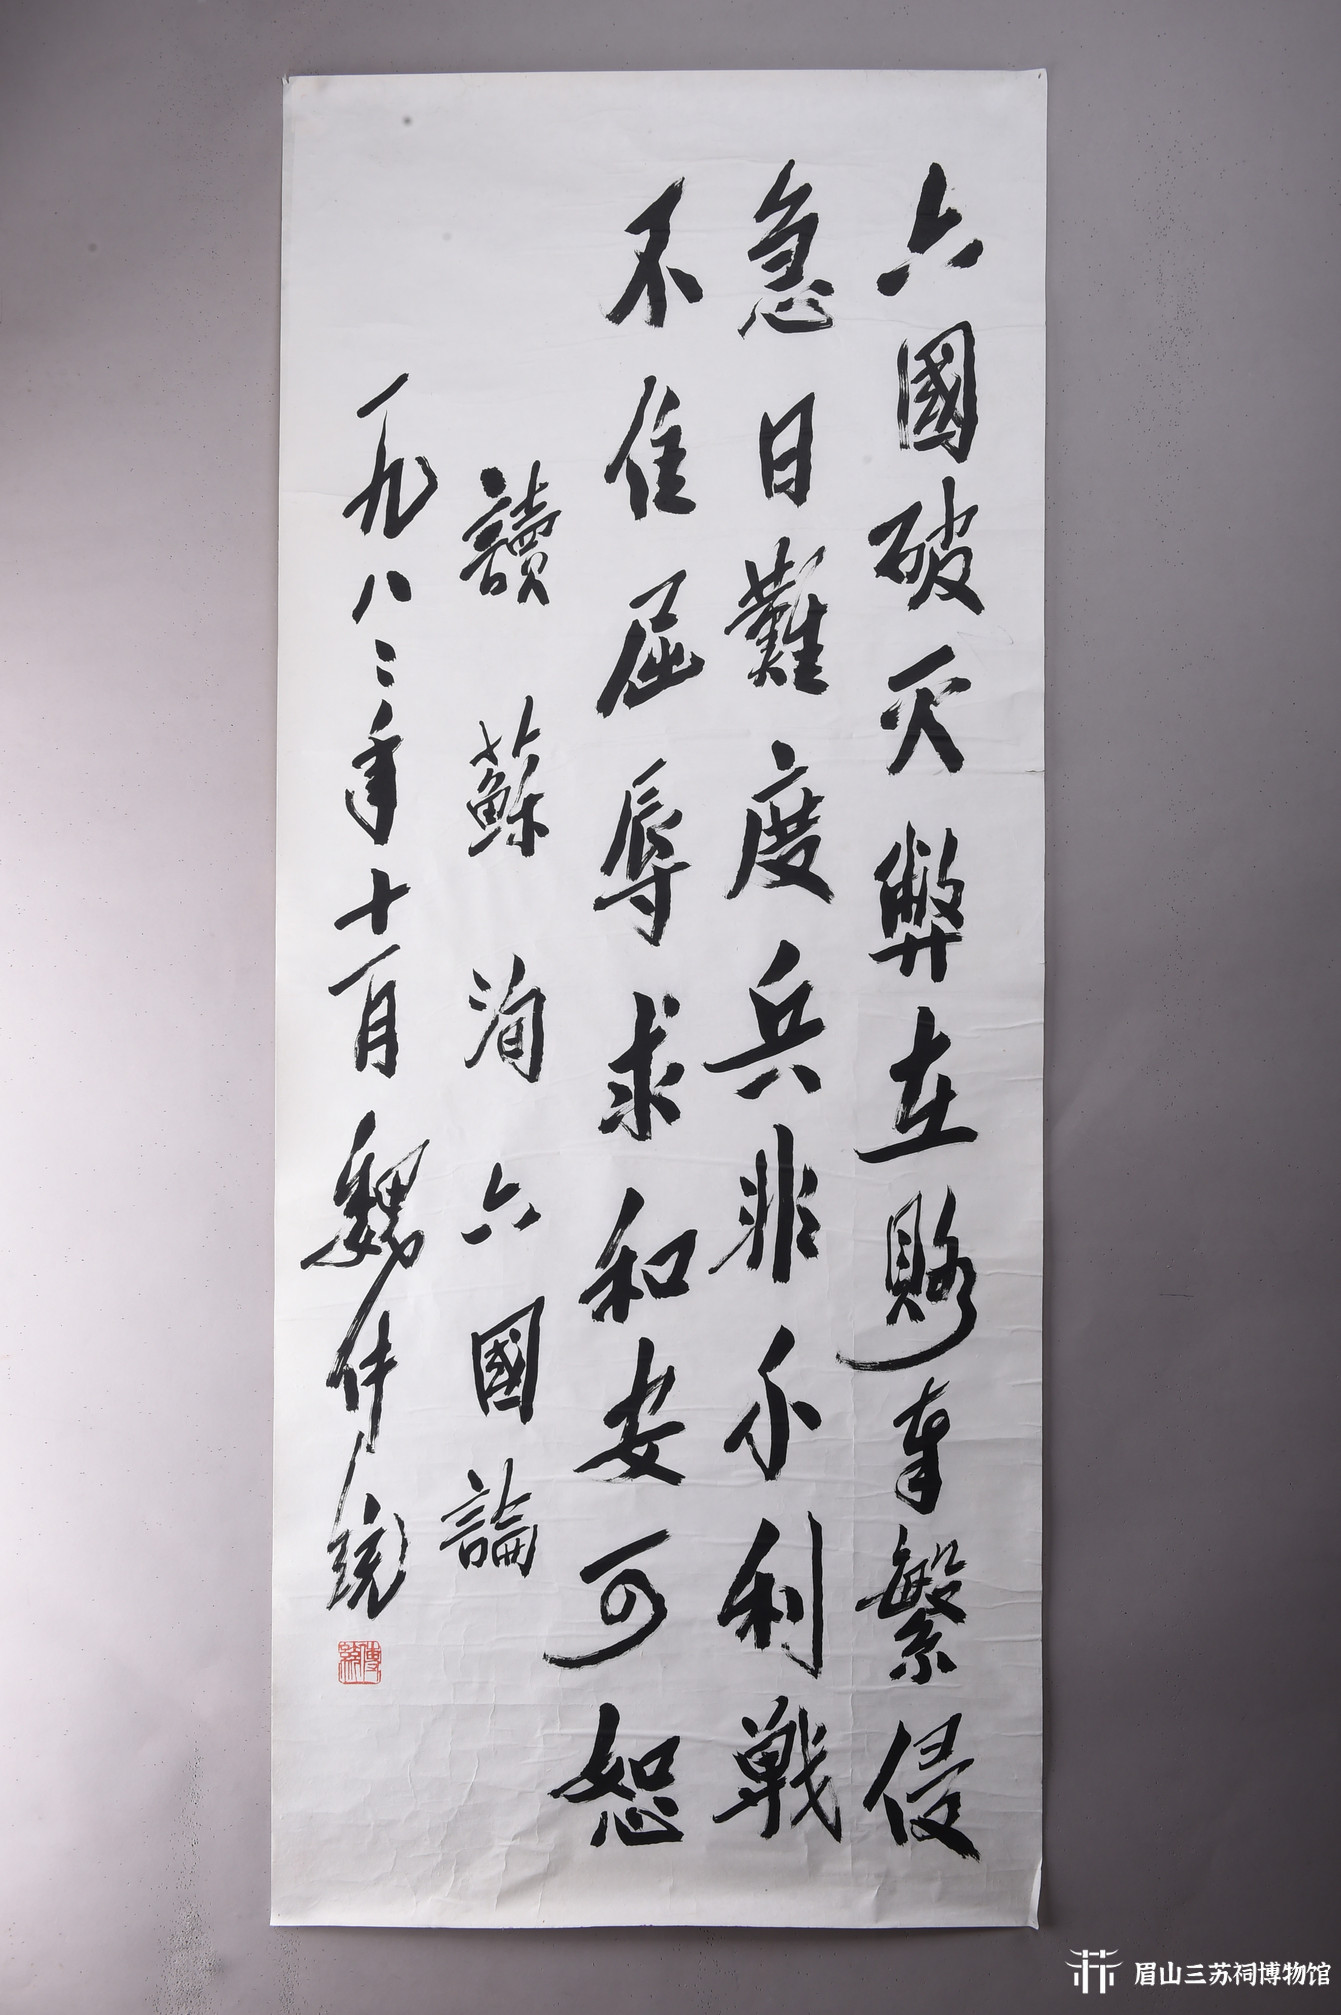 六國破灭弊在賂奉繁侵
急日難度兵非不利戰
不佳屈辱求和安可恕
讀蘇洵六國論
一九八二年十一月魏传统
傳統
眉山三苏祠博物馆